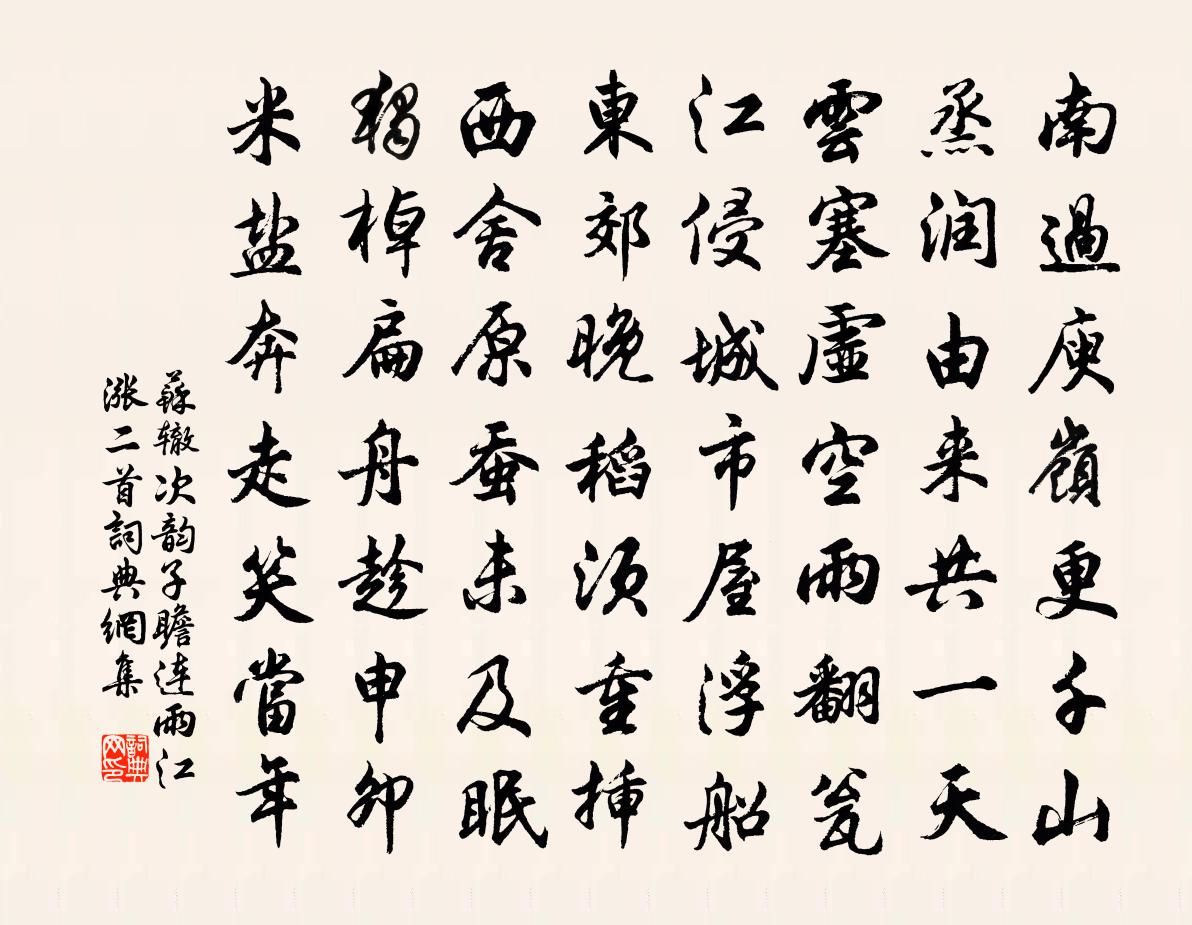 南過庾嶺更千山
烝润由来共一天
雲塞虛空雨翻瓮
江侵城市屋浮船
東郊晚稻须重插
西舍原蚕未及眠
獨棹扁舟趁申卯
米盐奔走笑當年
蘇辙次韵子瞻连雨江
涨二首詞典網集
詞典网印